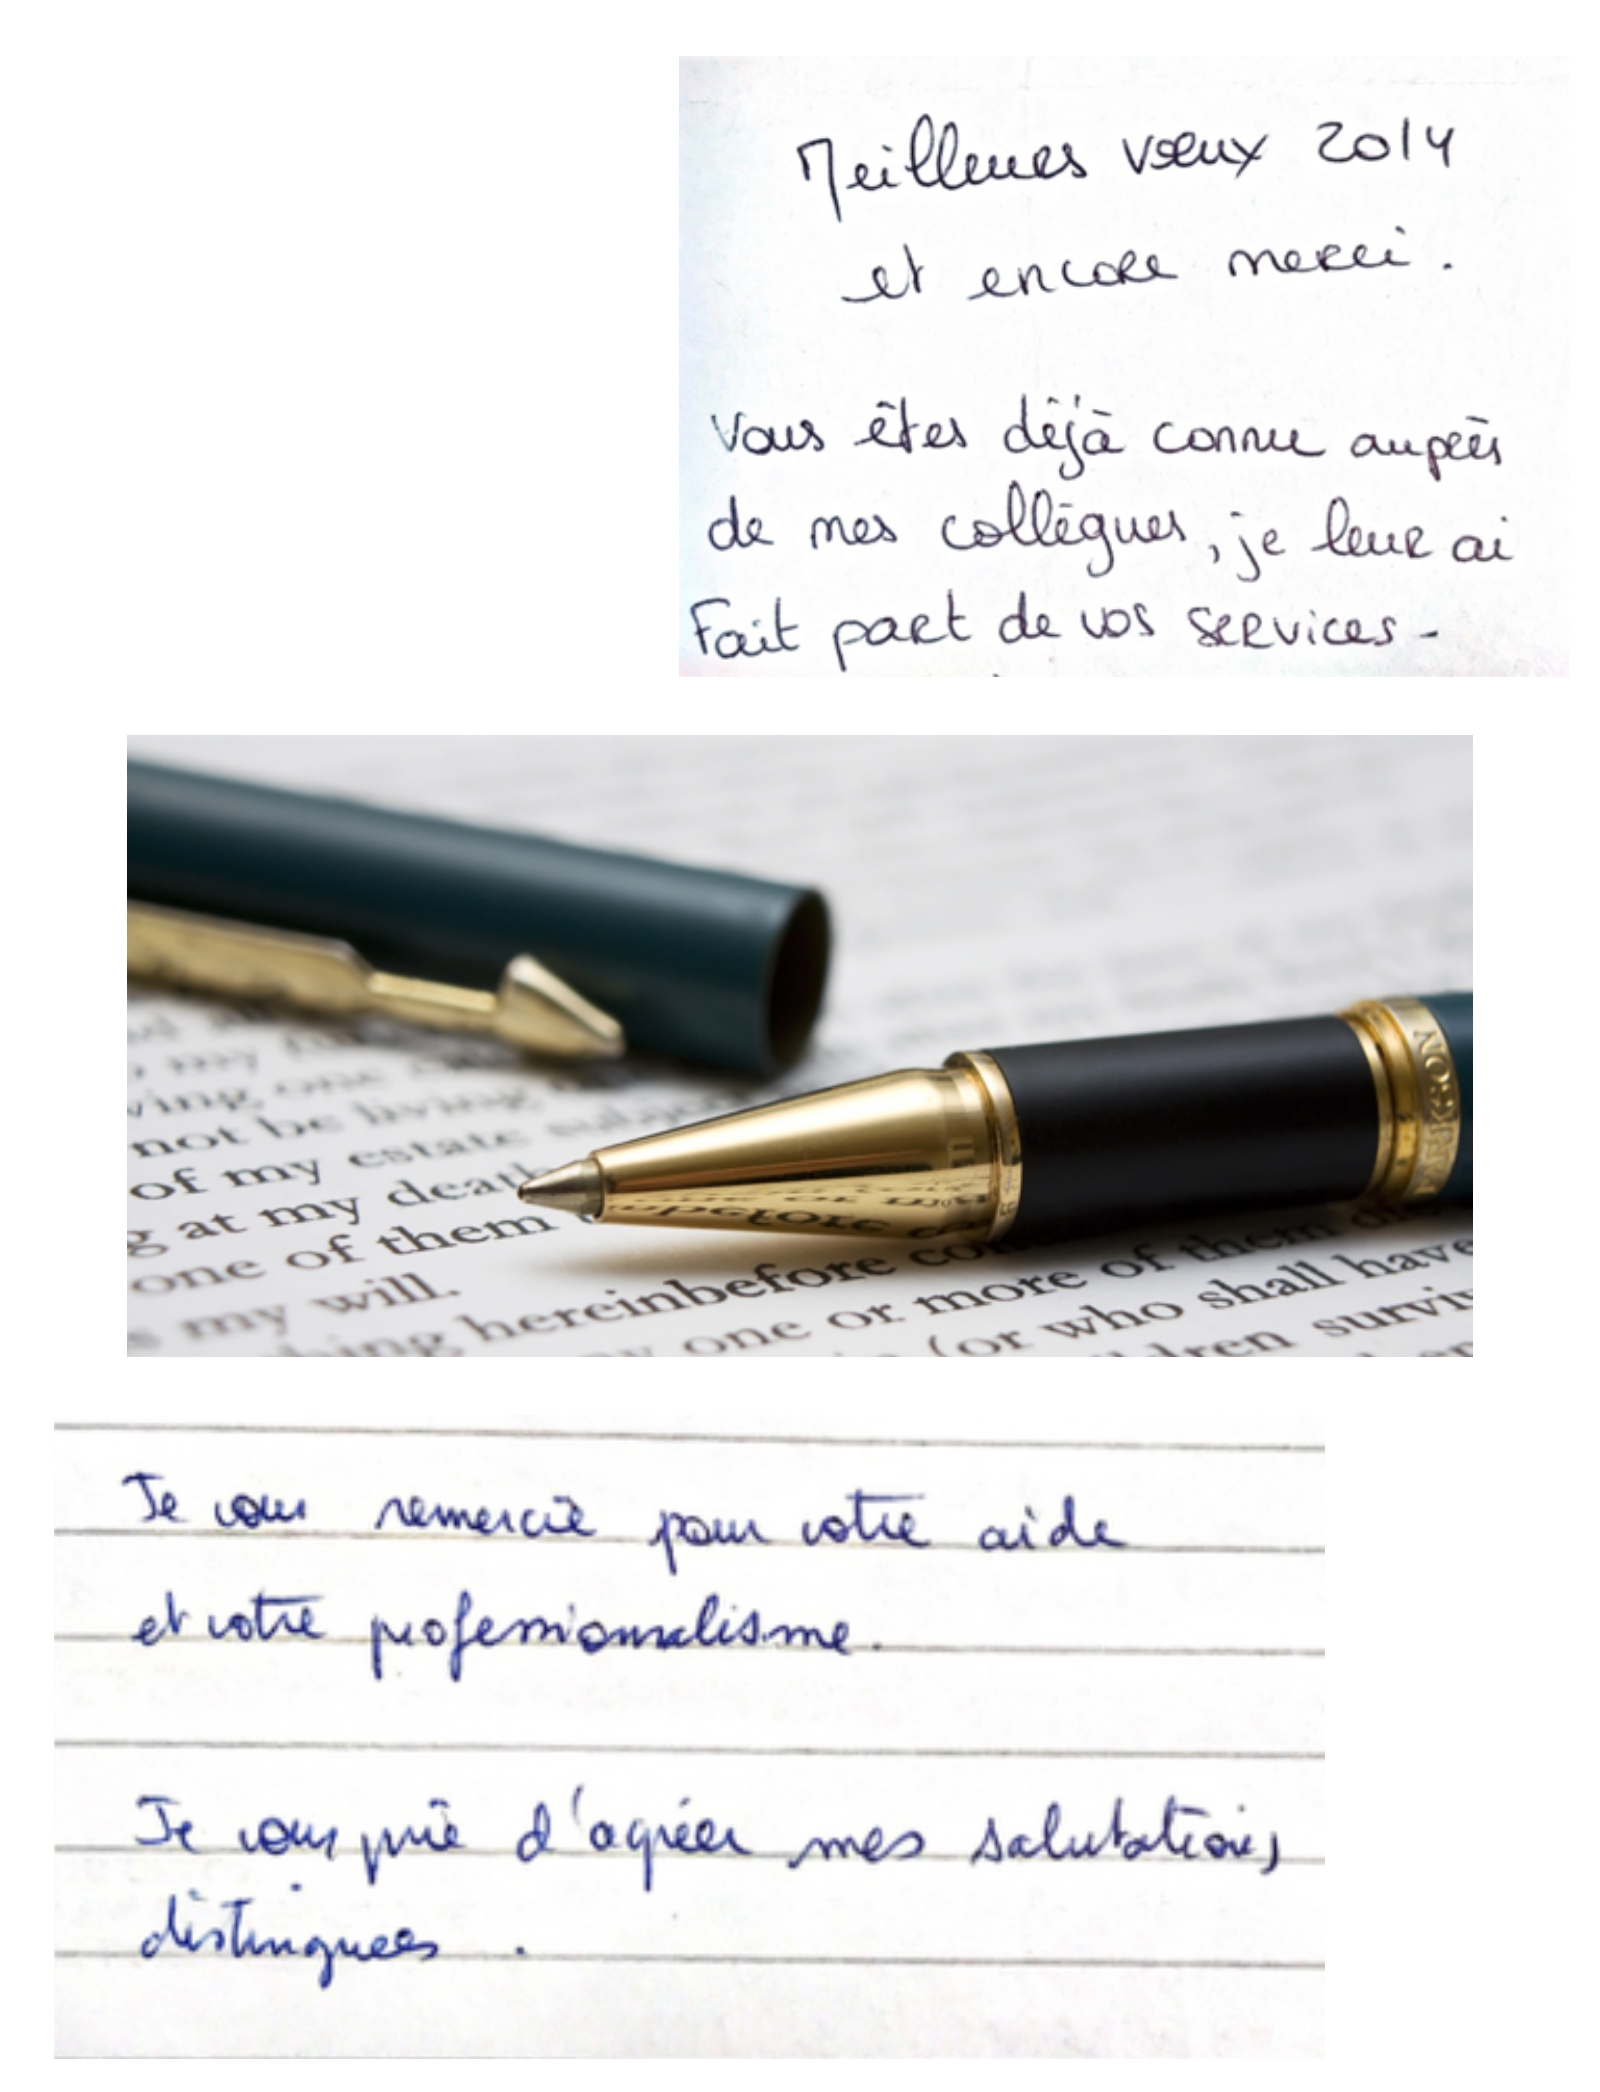 Meilleures vœux 2014
et encore merci.
Vous êtes déjà connue auprès
de mes collègues, je leur ai
Fait part de vos services -
PARKSON
ving one
not be living
of my estate subject
g at my death
one of them
my will.
hereinbefore
one or more of them
(or who shall have
Je vous remercie pour votre aide
et votre professionnalisme.
Je vous prie d'agréer mes salutations
distinguees .